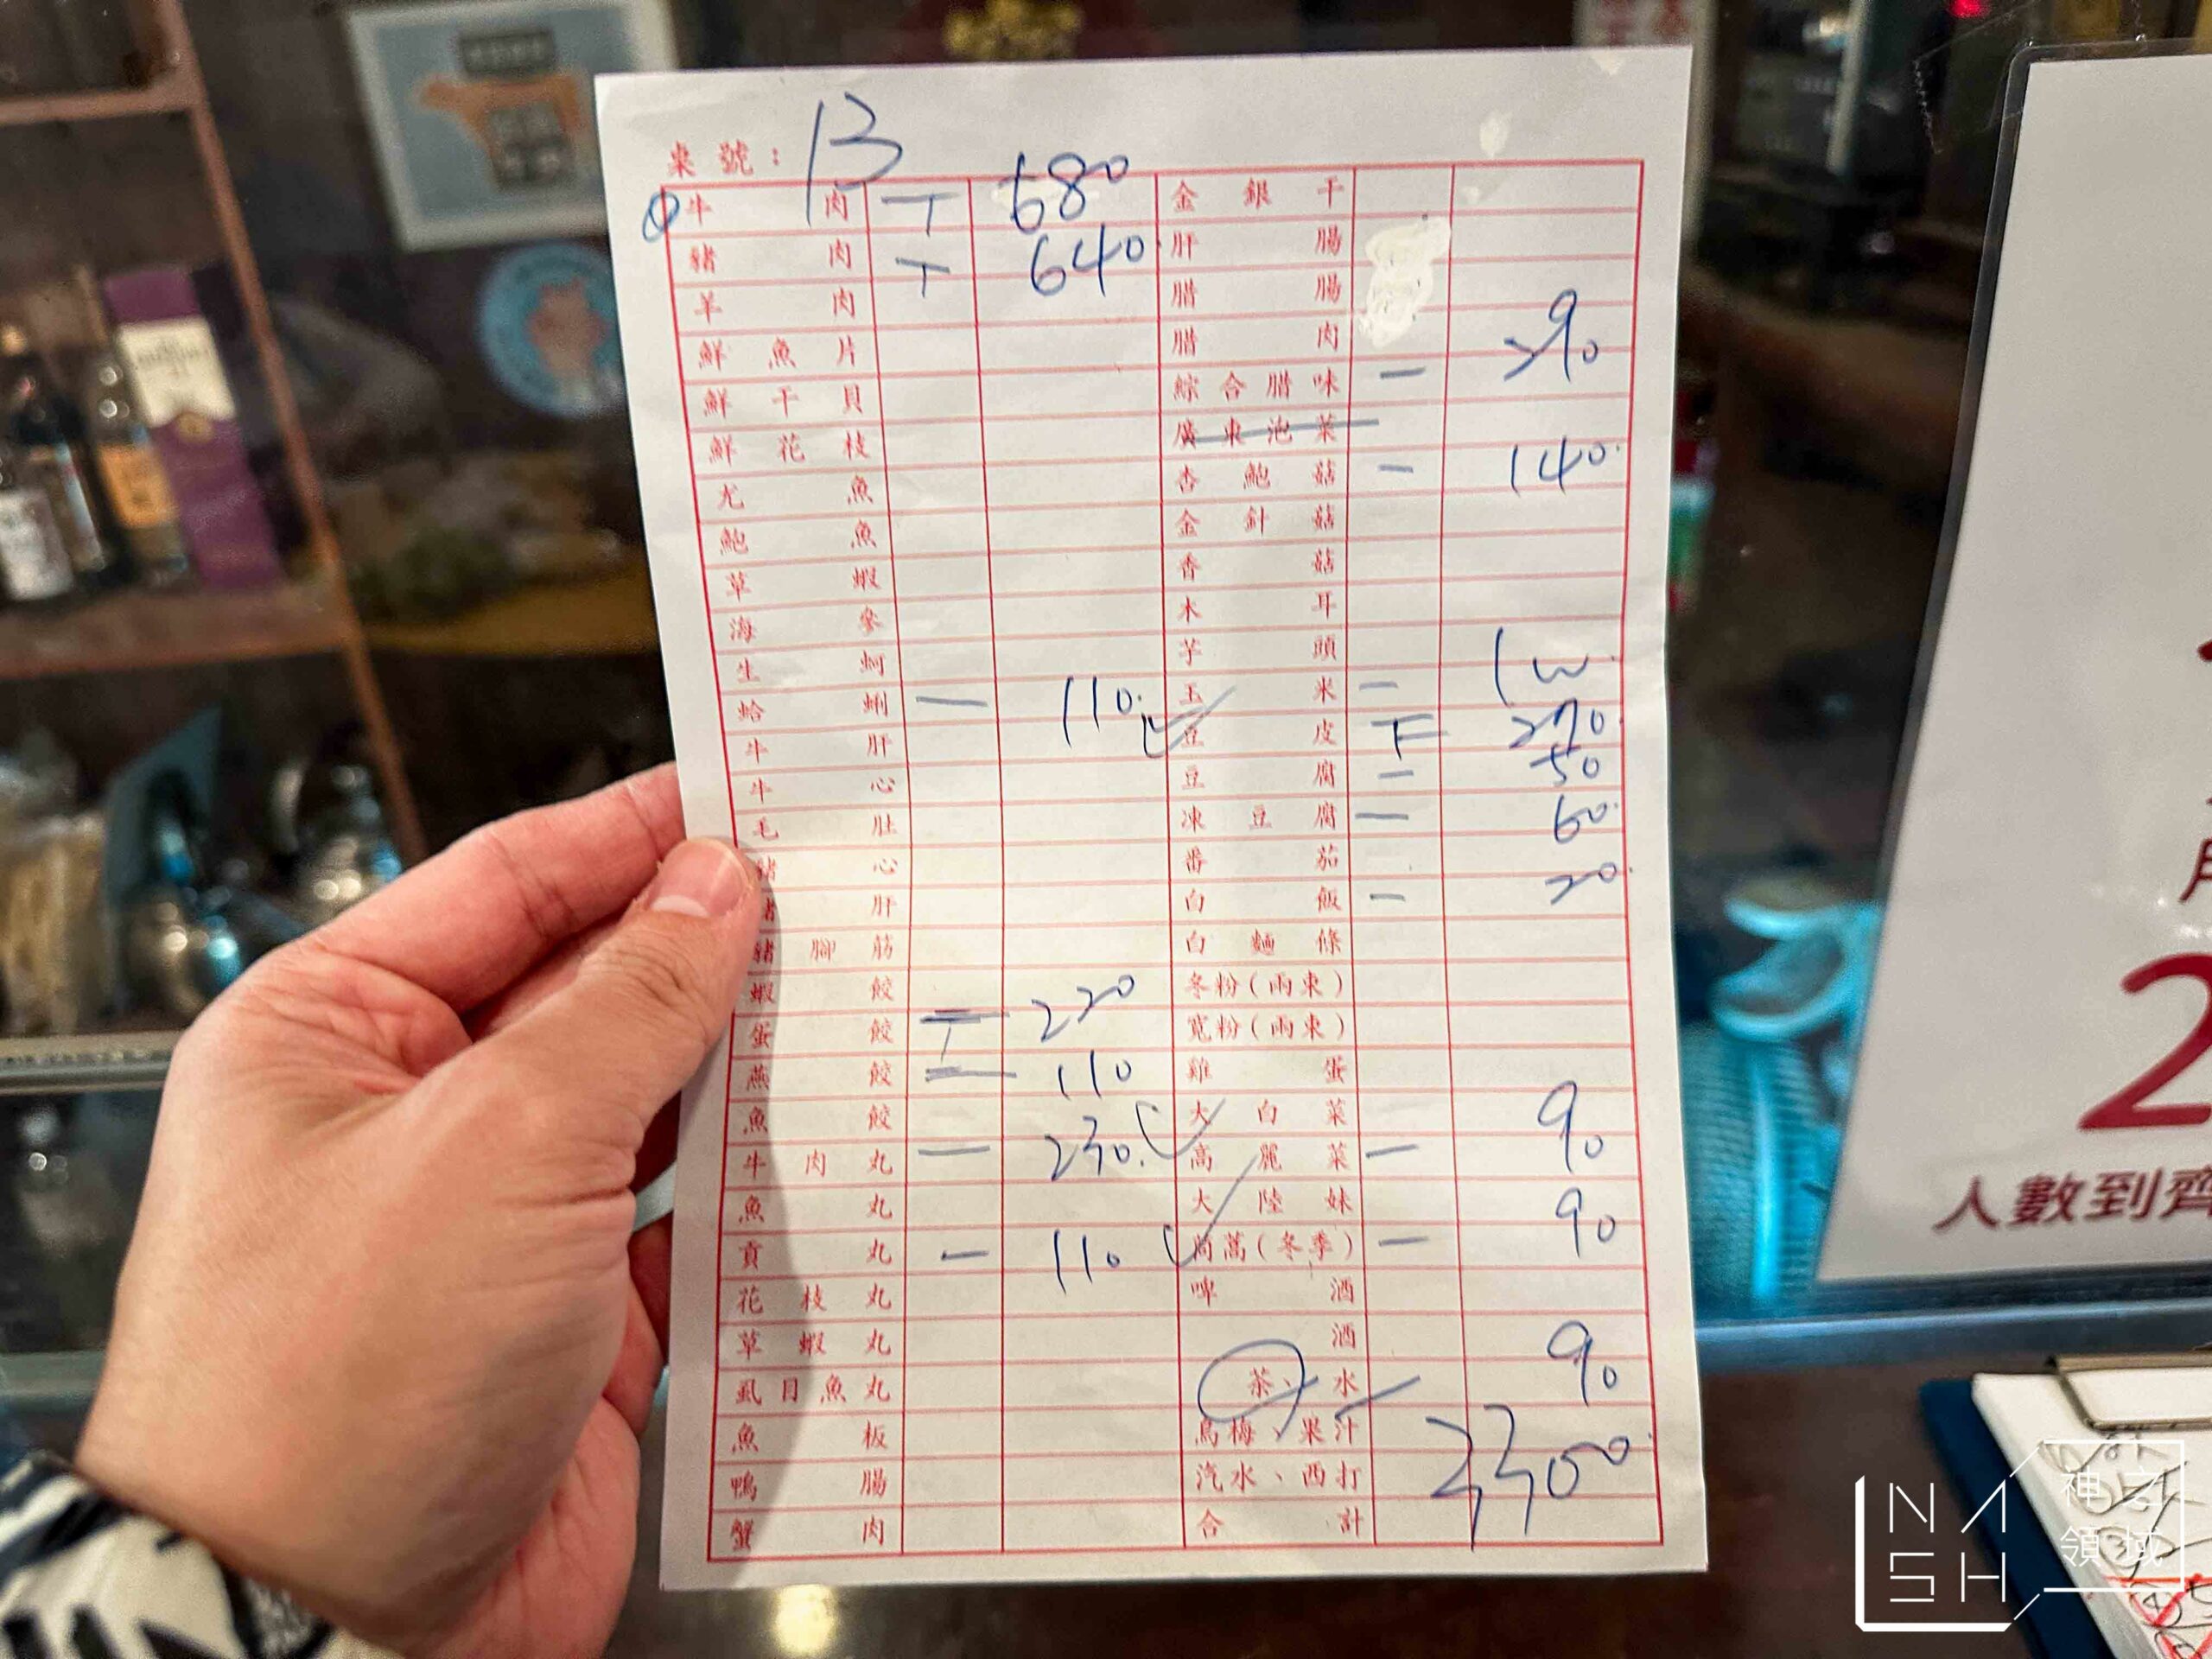 桌號：13
牛肉 T 680
豬肉 T 640
羊肉
鮮魚片
鮮干貝
鮮花枝
尤魚
鮑魚
草蝦
海參
生蚵
蛤蜊 一 110
牛肝
牛心
毛肚
豬心
豬肝
豬腳筋
蝦餃
蛋餃 T 220
燕餃 一 110
魚餃
牛肉丸 一 230
魚丸
貢丸 一 110
花枝丸
草蝦丸
虱目魚丸
魚板
鴨腸
蟹肉
金銀干
肝腸
腊腸
腊肉
綜合腊味 一 290
廣東泡菜
杏鮑菇 一 140
金針菇
香菇
木耳
芋頭
玉米 一 100
豆皮 下 270
豆腐 一 50
凍豆腐 一 60
番茄
白飯 一 20
白麵條
冬粉(兩束)
寬粉(兩束)
雞蛋
大白菜
高麗菜 一 90
大陸妹
茼蒿(冬季) 一 90
啤酒
酒
茶、水 90
烏梅、果汁
汽水、西打
合計 3300
2
人數到齊
NASH
神之
領域